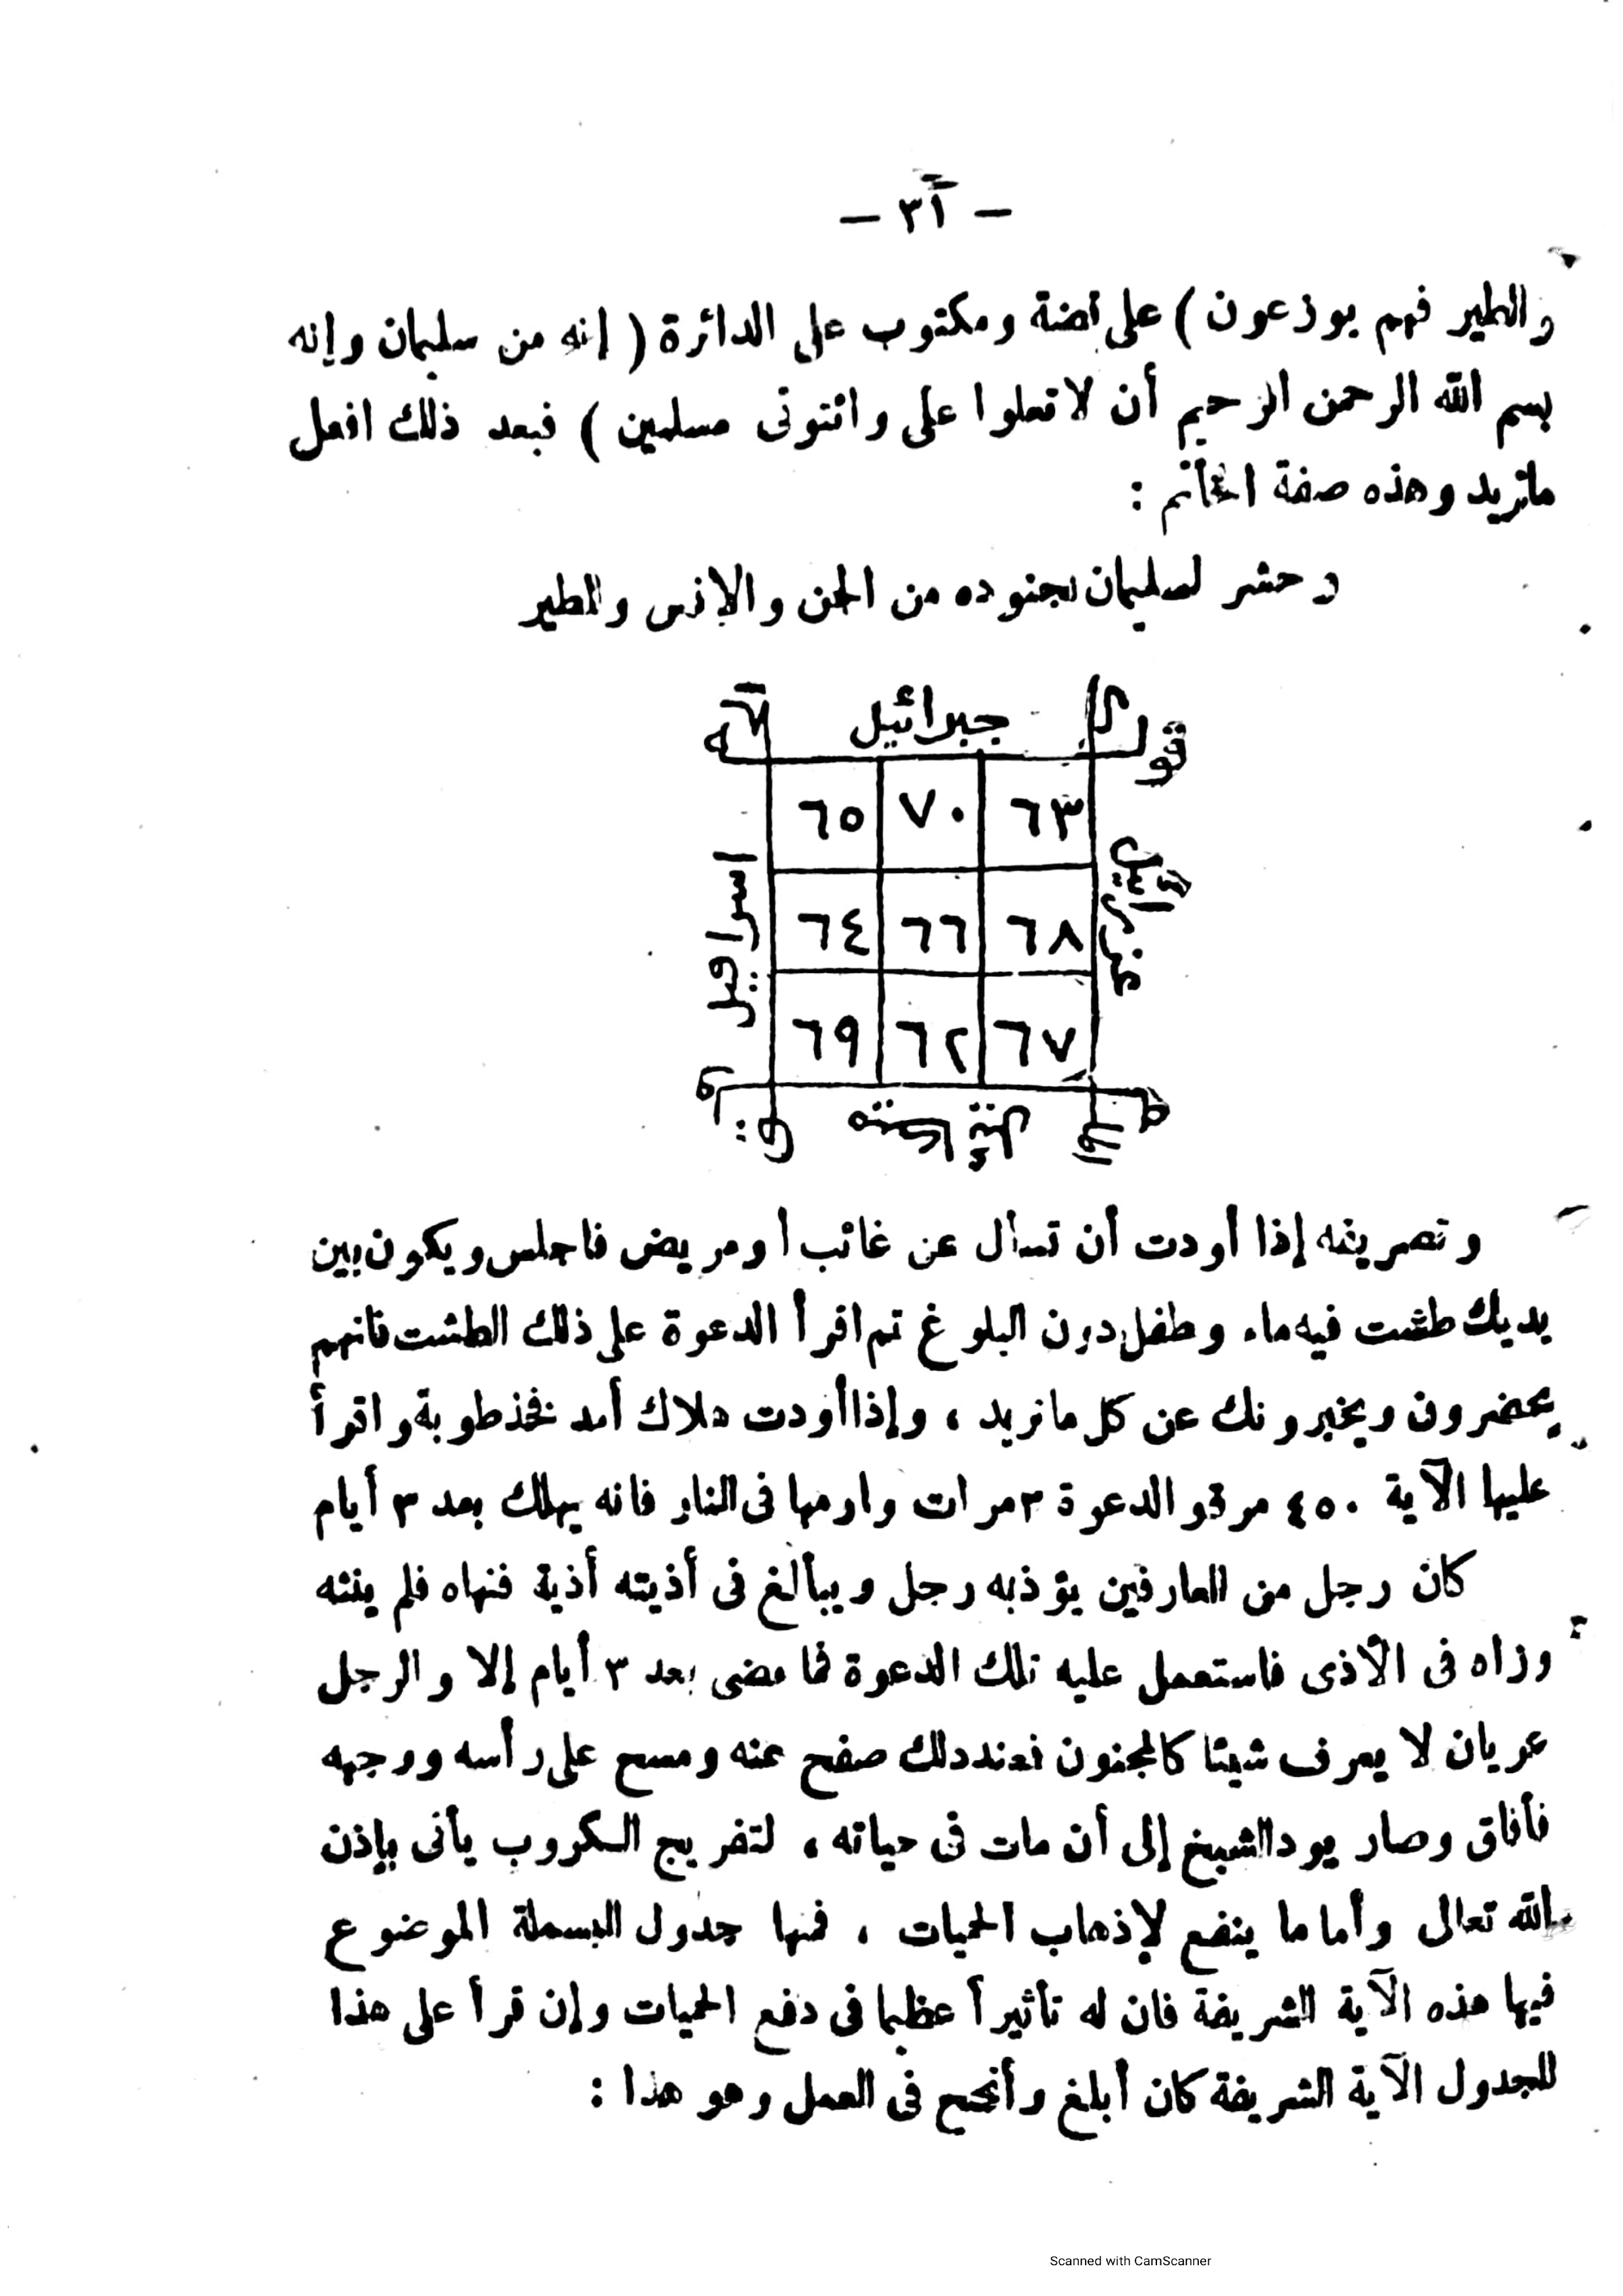 — ٣١ —
والطير فهم يوزعون ) على فضة ومكتوب على الدائرة ( إنه من سليمان وإنه
بسم الله الرحمن الرحيم أن لا تعلوا على وائتونى مسلمين ) فبعد ذلك افعل
ماتريد وهذه صفة الخاتم :
وحشر لسليمان جنوده من الجن والإنس والطير
جبرائيل
قوله
٦٥ ٧٠ ٦٣
٦٤ ٦٦ ٦٨
٦٩ ٦٢ ٦٧
اسرافيل
عزرائيل
ميكائيل
وتصريفه إذا أردت أن تسأل عن غائب أو مريض فاجلس ويكون بين
يديك طشت فيه ماء وطفل دون البلوغ ثم اقرأ الدعوة على ذلك الطشت فانهم
يحضرون ويخبرونك عن كل ماتريد ، وإذا أردت هلاك أحد فخذ طوبة واقرأ
عليها الآية ٤٥٠ مرة والدعوة ٣ مرات وارمها فى النار فانه يهلك بعد ٣ أيام
كان رجل من العارفين يؤذيه رجل ويبالغ فى أذيته أذية فنهاه فلم ينته
وزاه فى الأذى فاستعمل عليه تلك الدعوة فما مضى بعد ٣ أيام إلا والرجل
عريان لا يعرف شيئا كالمجنون فعند ذلك صفح عنه ومسح على رأسه ووجهه
فأفاق وصار يود الشيخ إلى أن مات فى حياته ، لتفريج الكروب يأتى بإذن
الله تعالى وأما ما ينفع لإذهاب الحميات ، فمنها جدول البسملة الموضوع
فيها هذه الآية الشريفة فان له تأثيرأ عظيما فى دفع الحميات وإن قرأ على هذا
الجدول الآية الشريفة كان أبلغ وأنجح فى العمل وهو هذا :
Scanned with CamScanner